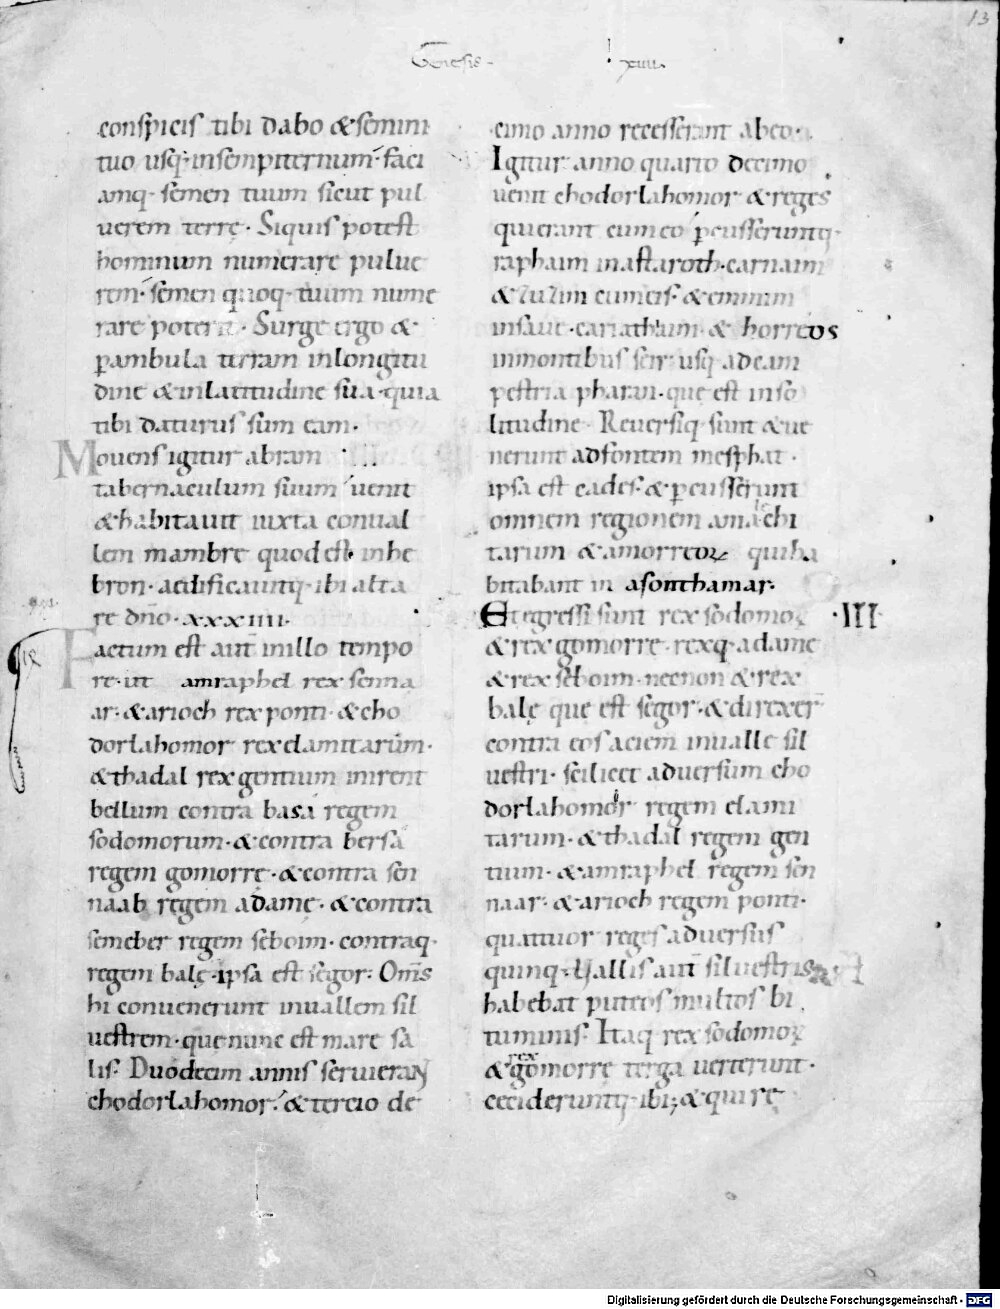 13
Genesis xiiii
conspicis tibi dabo & semini
tuo usq; insempiternum· faci
amq· semen tuum sicut pul
uerem terrę· Siquis potest
hominum numerare pulue
rem· semen quoq· tuum nume
rare poterit· Surge ergo &
pambula terram inlongitu
dine & inlatitudine sua· quia
tibi daturus sum eam·
Mouens igitur abram
tabernaculum suum uenit
& habitauit iuxta conual
lem mambre quod est inhe
bron· aedificauitq· ibi alta
re dño· xxxiiii·
Factum est aut̄ inillo tempo
re· ut amraphel rex senna
ar· & arioch rex ponti· & cho
dorlahomor rex elamitarum·
& thadal rex gentium inirent
bellum contra basa regem
sodomorum· & contra bersa
regem gomorrę· & contra sen
naab regem adamę· & contra
semeber regem seboim· contraq·
regem balę· ipsa est segor· Om̄s
hi conuenerunt inuallem sil
uestrem· que nunc est mare sa
lis· Duodecim annis seruieran̄
chodorlahomor· & tercio de
cimo anno recesserunt abeo·
Igitur anno quarto decimo
uenit chodorlahomor & reges
qui erant cumeo pcusseruntq·
raphaim inastaroth· carnaim
& zuzim cumeis· & emmim
insaue· cariathaim· & horreos
inmontibus seir usq adcam
pestria pharan· que est inso
litudine· Reuersiq· sunt & ue
nerunt adfontem mesphat·
ipsa est cades· & pcusserunt
omnem regionem amalechi
tarum & amorreoꝝ quiha
bitabant in asonthamar·
Et egressi sunt rex sodomoꝝ ·III·
& rex gomorre· rexq· adamę
& rex seboim· necnon & rex
balę que est segor· & direxer̄
contra eos aciem inualle sil
uestri· scilicet aduersum cho
dorlahomor regem elami
tarum· & thadal regem gen
tium· & amraphel regem sen
naar· & arioch regem ponti·
quattuor reges aduersus
quinq· Uallis aut̄ siluestris
habebat puteos multos bi
tuminis· Itaq rex sodomoꝝ
& rex gomorrę terga uerterunt·
cecideruntq· ibi; & qui re